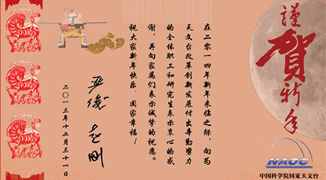 謹賀新年
在二零一四年新年来临之际，向为
天文台改革创新发展付出辛勤努力
的全体职工和研究生表示衷心的感
谢，并向家属们表示诚挚的祝愿。
祝大家新年快乐！阖家幸福！
严俊
二〇一三年十二月三十一日
NAOC
中国科学院国家天文台